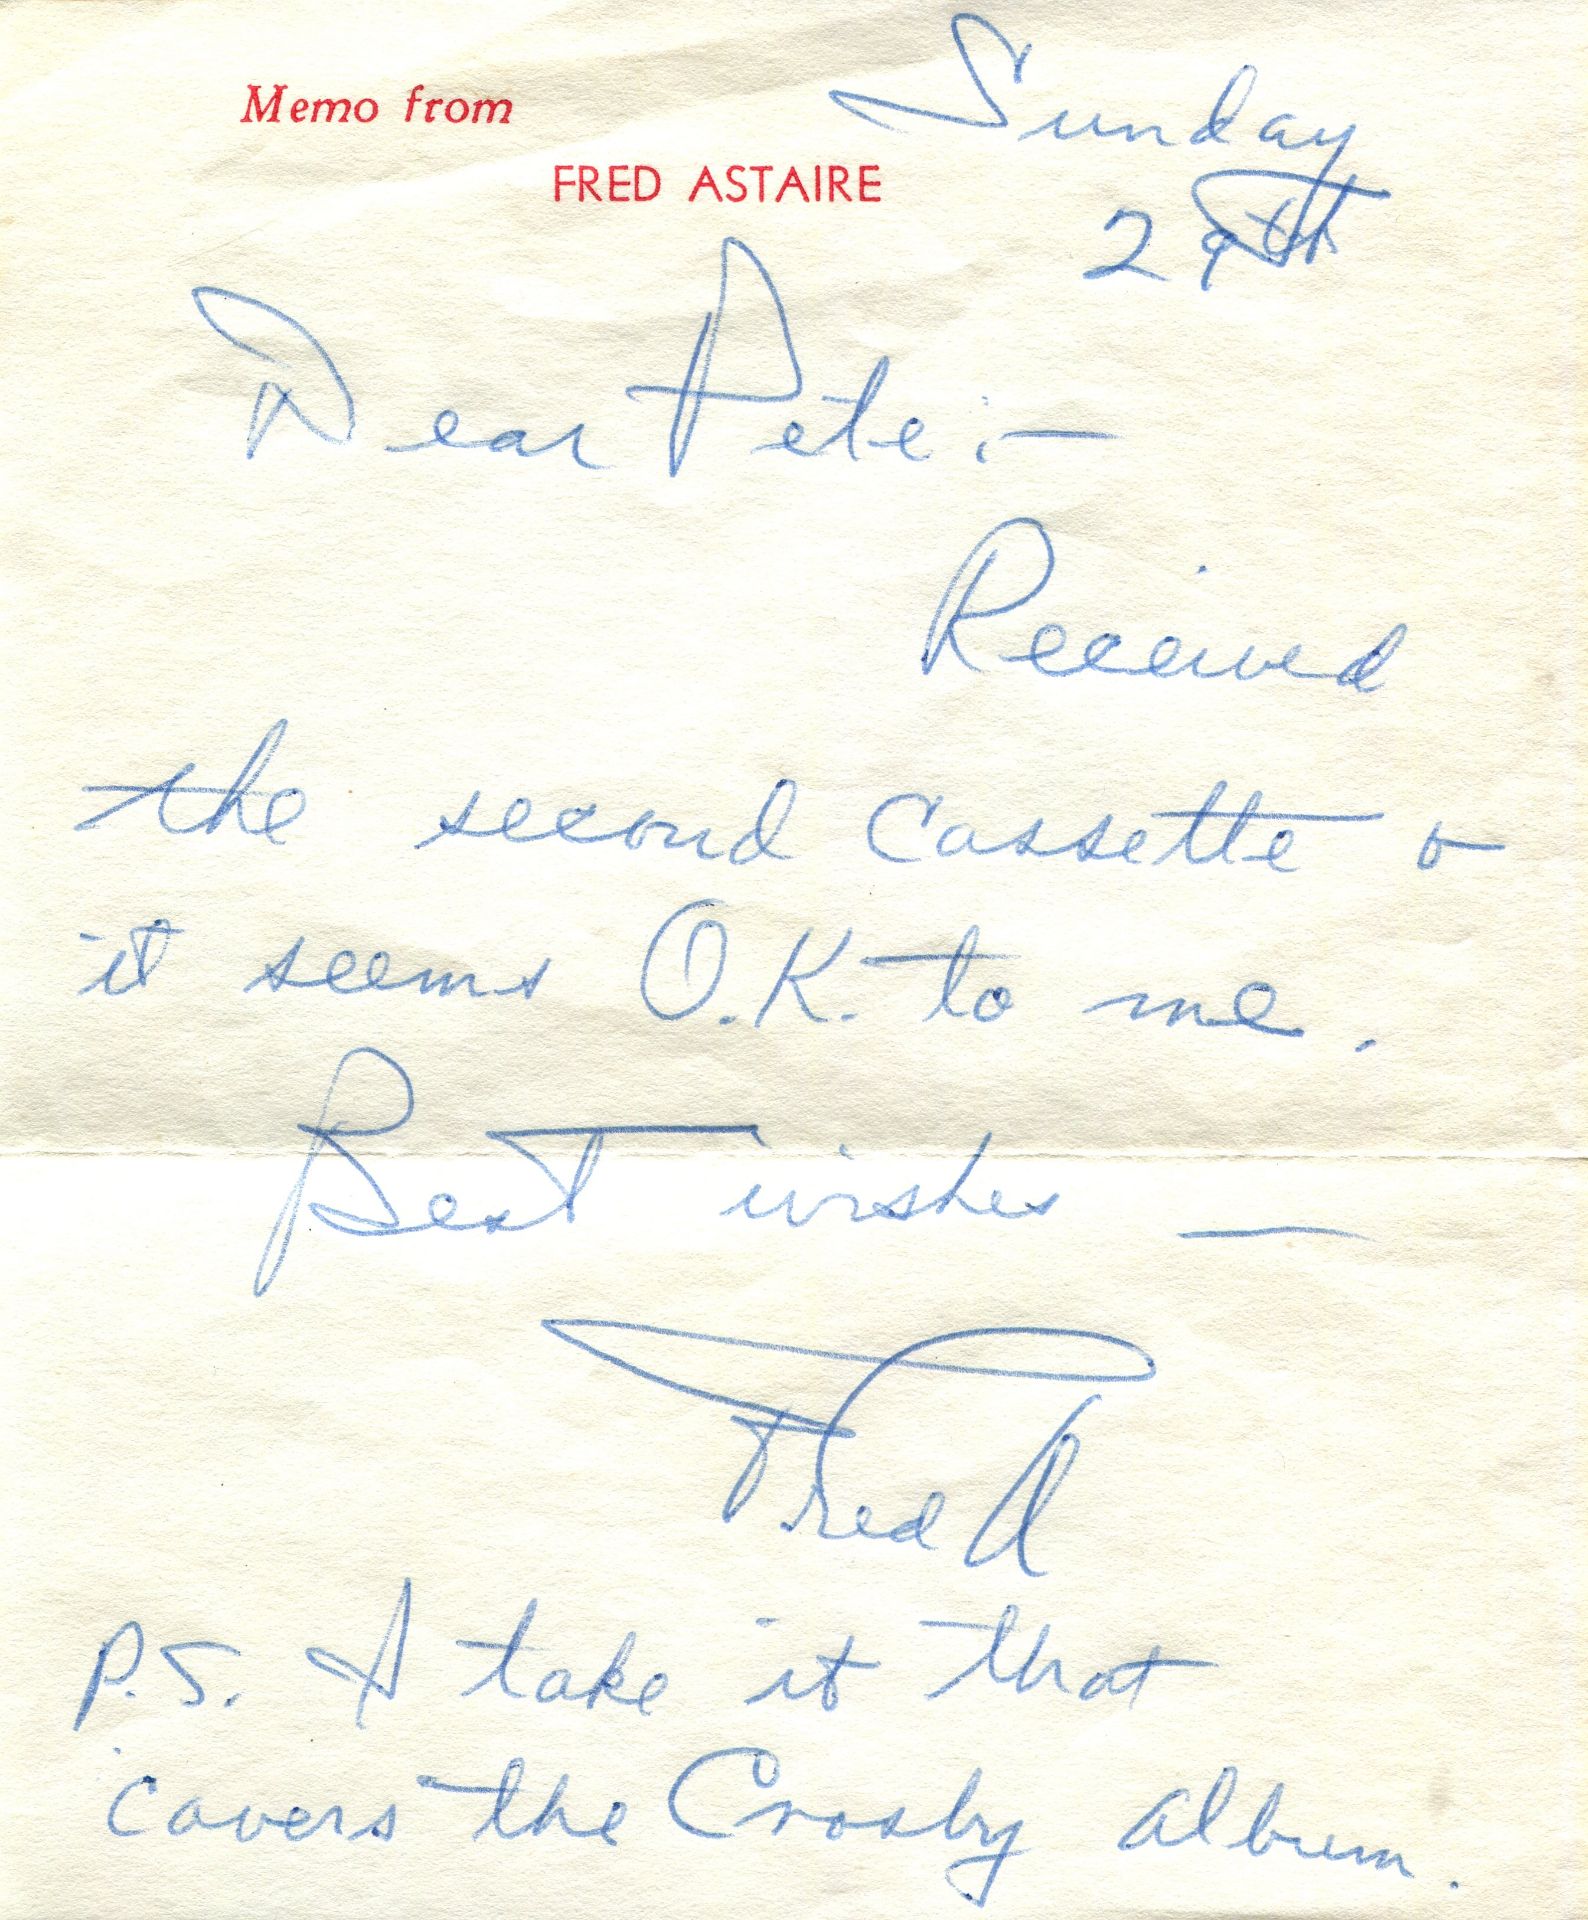 Memo from
FRED ASTAIRE
Sunday
29th
Dear Pete :—
Received
the second cassette &
it seems O.K. to me.
Best wishes —
Fred
P.S. I take it that
covers the Crosby album.